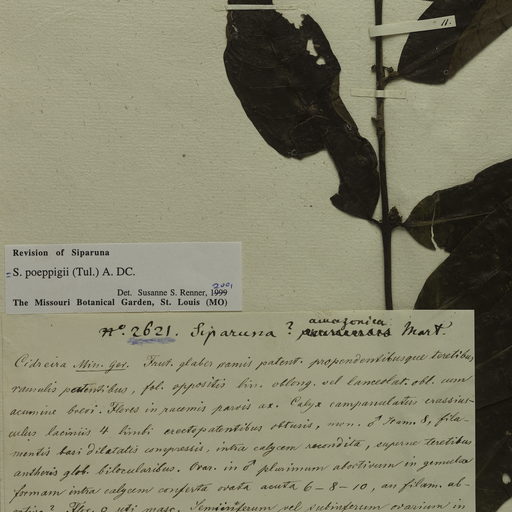 11.
Revision of Siparuna
= S. poeppigii (Tul.) A. DC.
Det. Susanne S. Renner, 1999 2001
The Missouri Botanical Garden, St. Louis (MO)
amazonica
No. 2621. Siparuna ? Mart.
Cidreira Min. Ger. Frut. glaber ramis patent. propendentibusque teretibus
ramulis patentibus, fol. oppositis lin. oblong. vel lanceolat. obl. cum
acumine brevi. Flores in racemis parvis ax. Calyx campanulatus crassius-
culus laciniis 4 limbi erectopatentibus obtusis, mon. ♂ stam. 8, fila-
mentis basi dilatatis compressis, intra calycem recondita, superne teretibus
antheris glob. bilocularibus. Ovar. in ♂ plurimum abortivum in gemulae
formam intra calycem conferta ovata acuta 6-8-10, an filam. ab-
Flor. ♀ uti masc. vel subinferum ovarium in